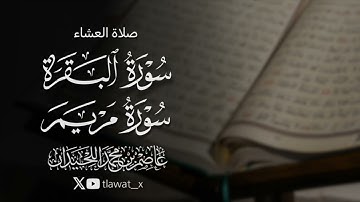 صلاة العشاء
سُورَةُ البَقَرَة
سُورَةُ مَرْيَمَ
عاصم بن محمد اللحيدان
tlawat_x